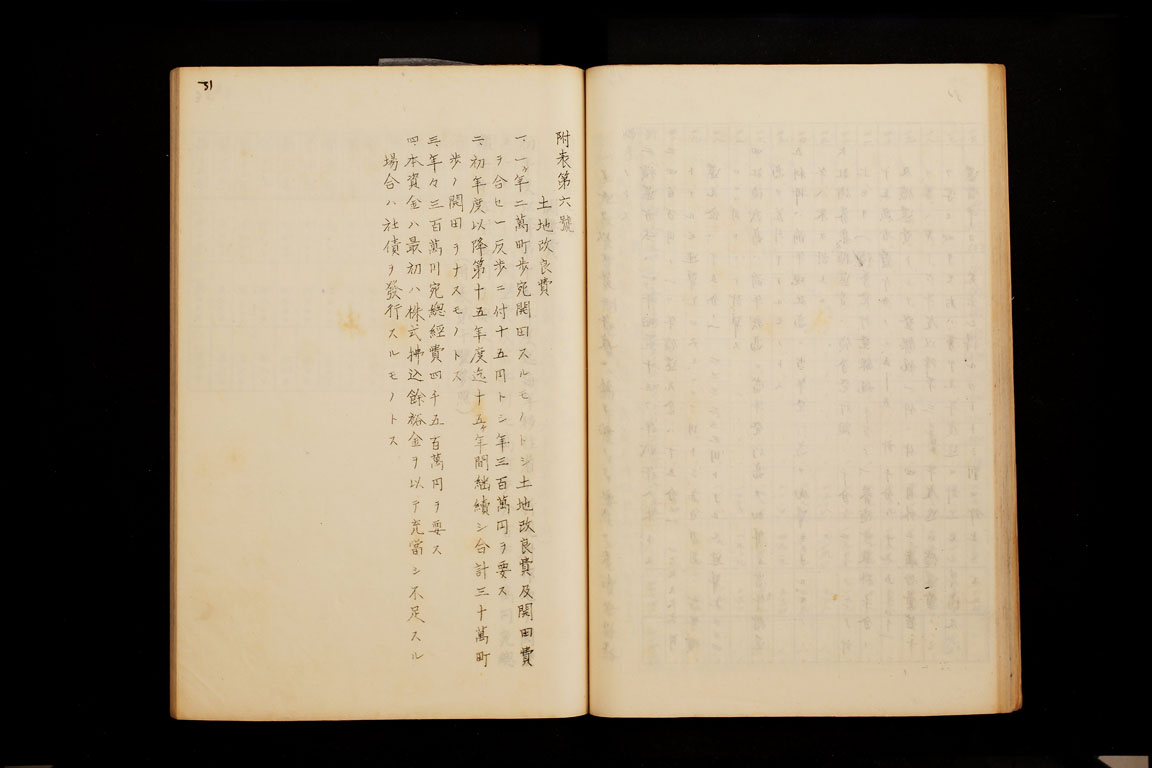 附表第六號
土地改良費
一、一ヶ年二萬町歩宛開田スルモノトシ土地改良費及開田費
ヲ合セ一反歩ニ付十五円トシ年三百萬円ヲ要ス
二、初年度以降第十五年度迄十五ヶ年間継續シ合計三十萬町
歩ノ開田ヲナスモノトス
三、年々三百萬円宛總經費四千五百萬円ヲ要ス
四、本資金ハ最初ハ株式拂込餘裕金ヲ以テ充當シ不足スル
場合ハ社債ヲ發行スルモノトス
31